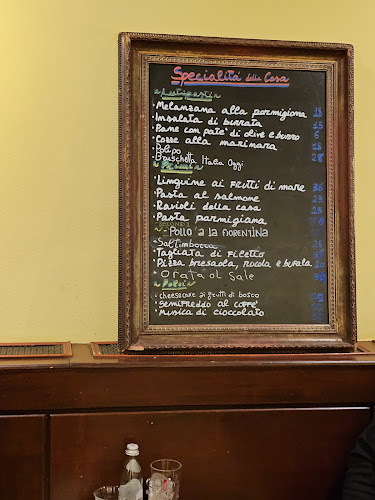 Specialità della Casa
Antipasti
• Melanzana alla parmigiana 18
• Insalata di burrata 15
• Pane con pate' di olive e burro 6
• Cozze alla marinara 18
Polipo
Bruschetta Italia Oggi 28
• Linguine ai frutti di mare 36
• Pasta al salmone 23
• Ravioli della casa
• Pasta parmigiana
- Pollo 'a la fiorentina
- Saltimbocca
• Tagliata di filetto
• Pizza bresaola, rucola e bufala
• Orata al Sale
• Dolci
• cheesecake ai frutti di bosco
• Semifreddo al caffe'
• Musica di cioccolato